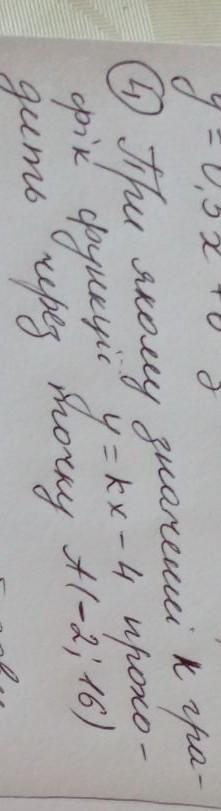 ④ При якому значенні к гра-
фік функції y=kx-4 прохо-
дить через точку А(-2; 16)